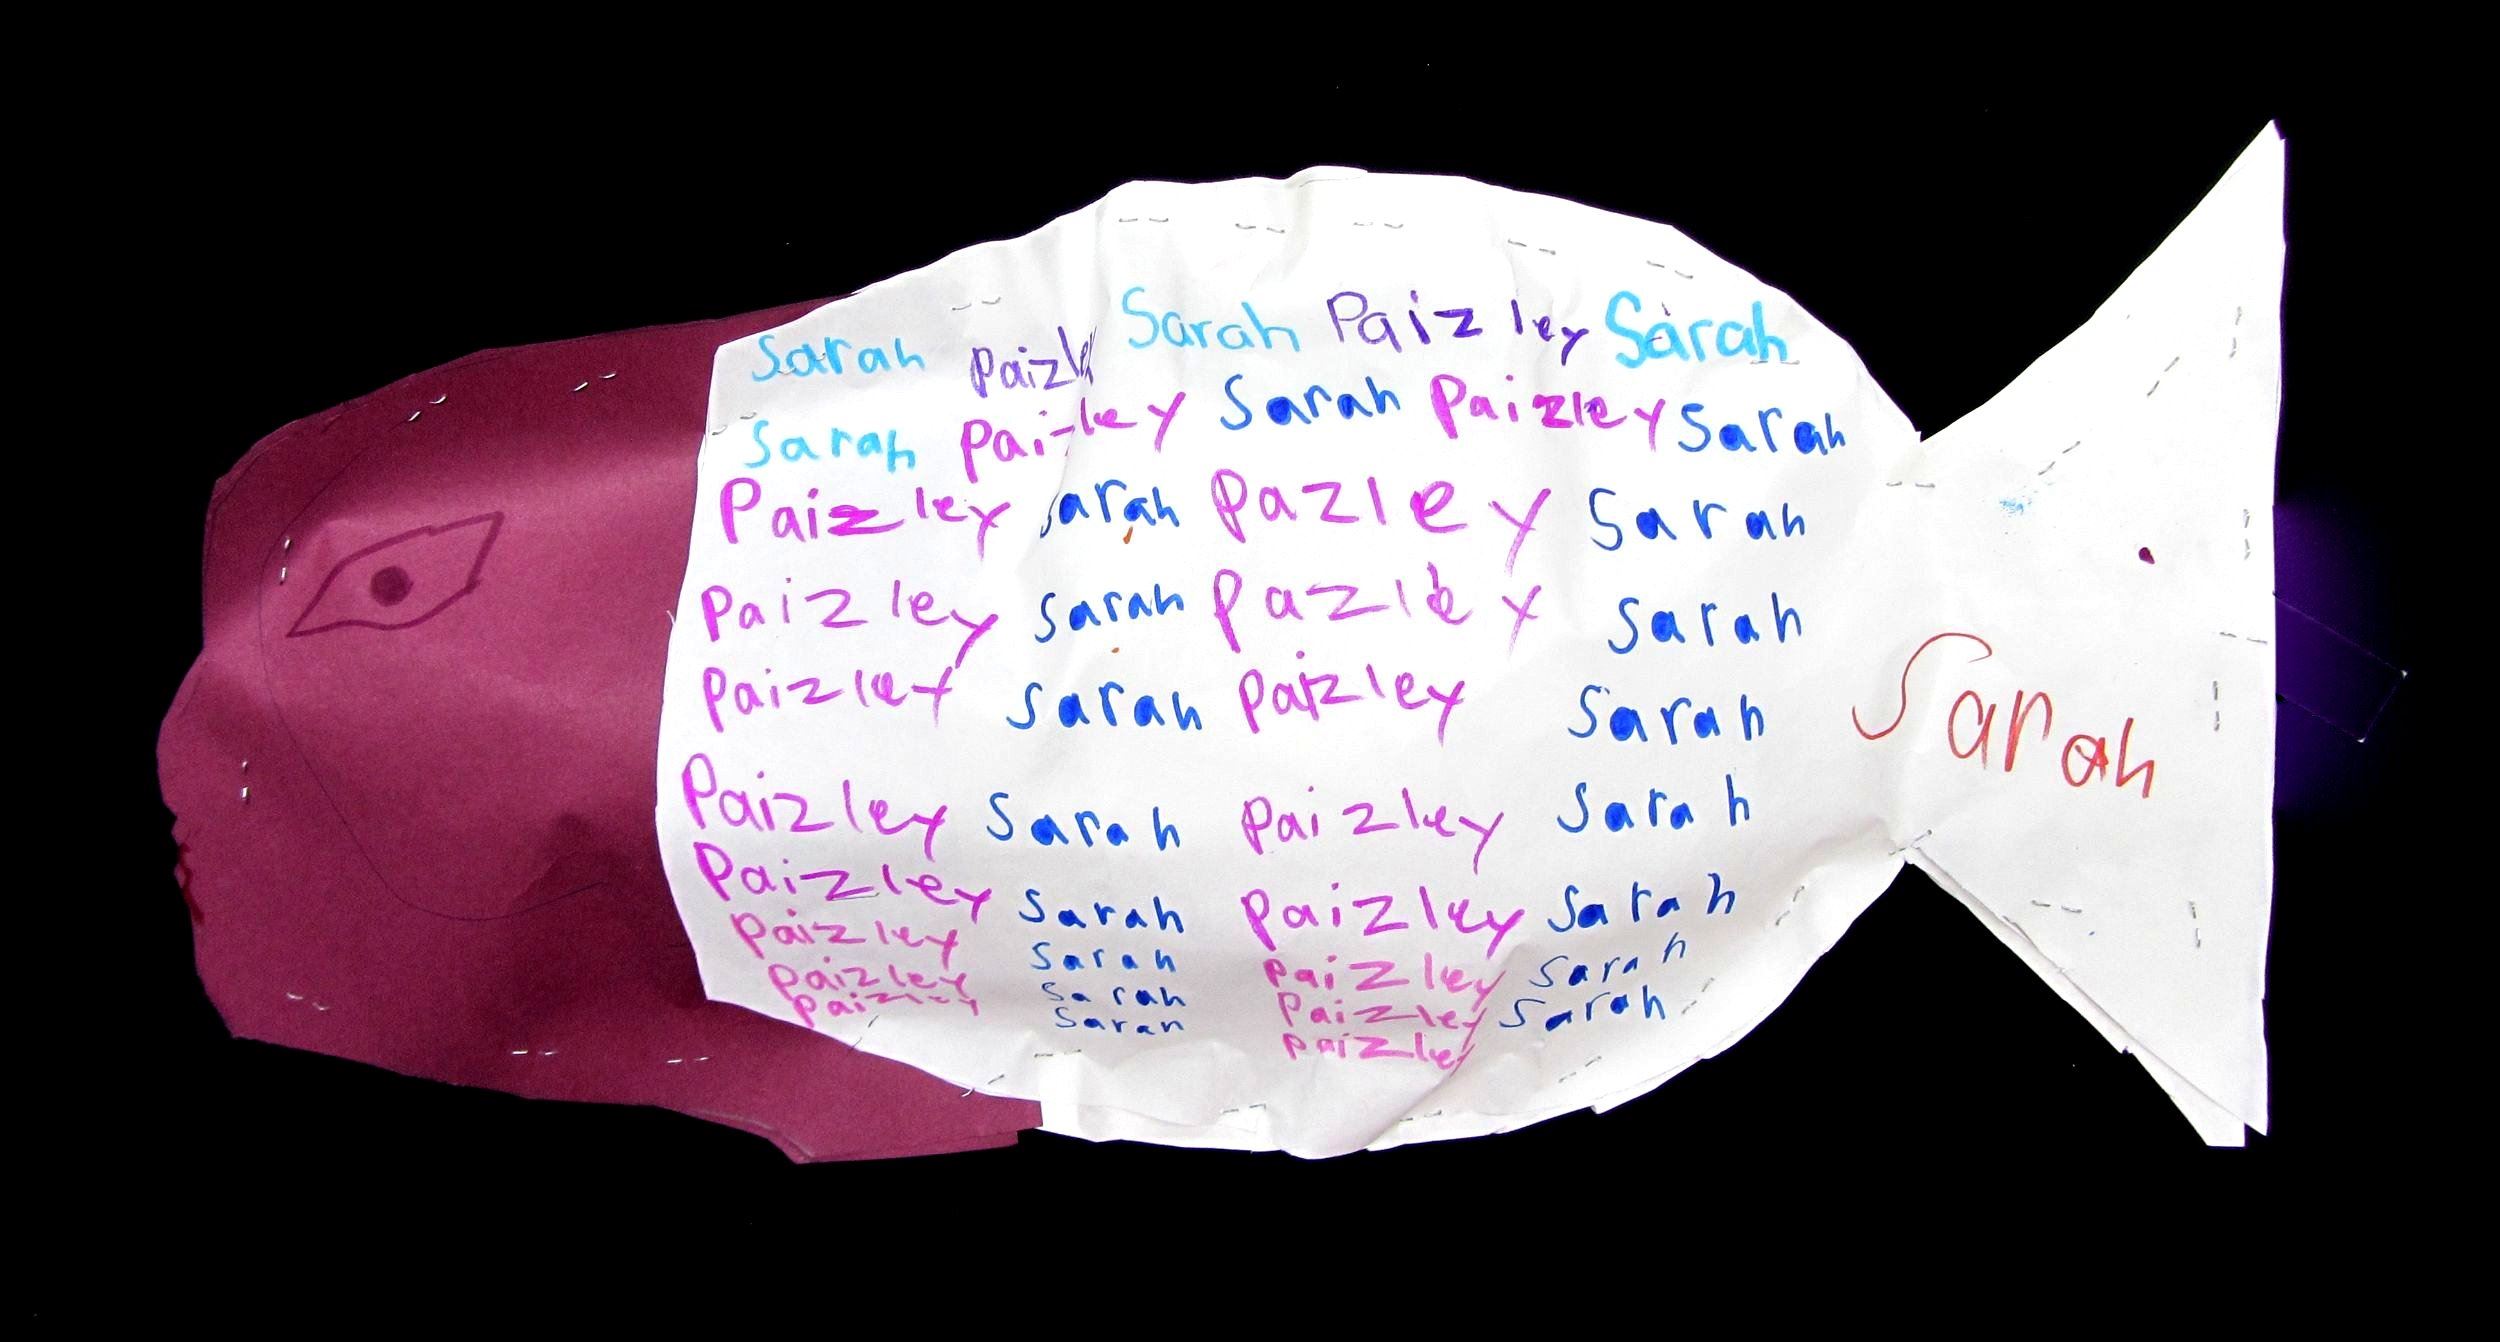 Sarah Paizley Sarah Paizley Sarah
Sarah Paizley Sarah Paizley Sarah
Paizley Sarah Pazley Sarah
Paizley Sarah Pazley Sarah
Paizley Sarah Paizley Sarah
Sarah
Paizley Sarah Paizley Sarah
Paizley Sarah Paizley Sarah
Paizley Sarah Paizley Sarah
Paizley Sarah Paizley Sarah
Paizley Sarah Paizley